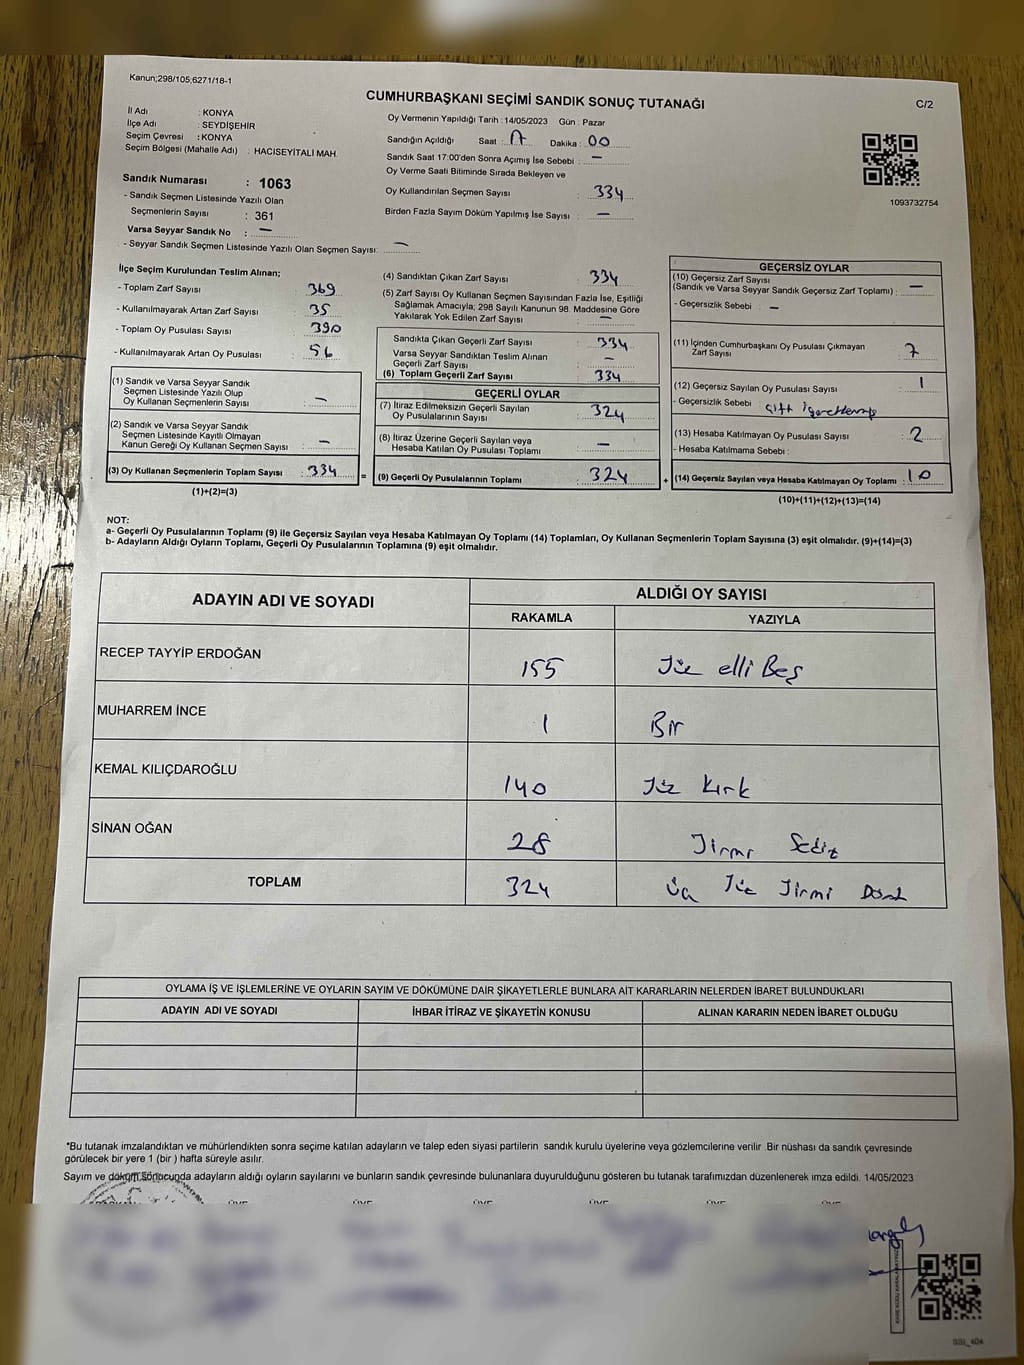 Kanun;298/105,6271/18-1
CUMHURBAŞKANI SEÇİMİ SANDIK SONUÇ TUTANAĞI
C/2
İl Adı : KONYA
İlçe Adı : SEYDİŞEHİR
Seçim Çevresi : KONYA
Seçim Bölgesi (Mahalle Adı) : HACISEYİTALİ MAH.
Sandık Numarası : 1063
- Sandık Seçmen Listesinde Yazılı Olan
Seçmenlerin Sayısı : 361
Varsa Seyyar Sandık No : —
- Seyyar Sandık Seçmen Listesinde Yazılı Olan Seçmen Sayısı: —
Oy Vermenin Yapıldığı Tarih : 14/05/2023 Gün : Pazar
Sandığın Açıldığı Saat : 17 Dakika : 00
Sandık Saat 17:00'den Sonra Açımış İse Sebebi : —
Oy Verme Saati Bitiminde Sırada Bekleyen ve
Oy Kullandırılan Seçmen Sayısı : 334
Birden Fazla Sayım Döküm Yapılmış İse Sayısı : —
1093732754
İlçe Seçim Kurulundan Teslim Alınan;
- Toplam Zarf Sayısı : 369
- Kullanılmayarak Artan Zarf Sayısı : 35
- Toplam Oy Pusulası Sayısı : 390
- Kullanılmayarak Artan Oy Pusulası : 56
(1) Sandık ve Varsa Seyyar Sandık
Seçmen Listesinde Yazılı Olup
Oy Kullanan Seçmenlerin Sayısı : —
(2) Sandık ve Varsa Seyyar Sandık
Seçmen Listesinde Kayıtlı Olmayan
Kanun Gereği Oy Kullanan Seçmen Sayısı : —
(3) Oy Kullanan Seçmenlerin Toplam Sayısı : 334
(1)+(2)=(3)
=
(4) Sandıktan Çıkan Zarf Sayısı : 334
(5) Zarf Sayısı Oy Kullanan Seçmen Sayısından Fazla İse, Eşitliği
Sağlamak Amacıyla; 298 Sayılı Kanunun 98. Maddesine Göre
Yakılarak Yok Edilen Zarf Sayısı : —
Sandıkta Çıkan Geçerli Zarf Sayısı : 334
Varsa Seyyar Sandıktan Teslim Alınan
Geçerli Zarf Sayısı : —
(6) Toplam Geçerli Zarf Sayısı : 334
GEÇERLİ OYLAR
(7) İtiraz Edilmeksizin Geçerli Sayılan
Oy Pusulalarının Sayısı : 324
(8) İtiraz Üzerine Geçerli Sayılan veya
Hesaba Katılan Oy Pusulası Toplamı : —
(9) Geçerli Oy Pusulalarının Toplamı : 324
+
GEÇERSİZ OYLAR
(10) Geçersiz Zarf Sayısı
(Sandık ve Varsa Seyyar Sandık Geçersiz Zarf Toplamı) : —
- Geçersizlik Sebebi : —
(11) İçinden Cumhurbaşkanı Oy Pusulası Çıkmayan
Zarf Sayısı : 7
(12) Geçersiz Sayılan Oy Pusulası Sayısı : 1
- Geçersizlik Sebebi : çift
(13) Hesaba Katılmayan Oy Pusulası Sayısı : 2
- Hesaba Katılmama Sebebi :
(14) Geçersiz Sayılan veya Hesaba Katılmayan Oy Toplamı : 10
(10)+(11)+(12)+(13)=(14)
NOT:
a- Geçerli Oy Pusulalarının Toplamı (9) ile Geçersiz Sayılan veya Hesaba Katılmayan Oy Toplamı (14) Toplamları, Oy Kullanan Seçmenlerin Toplam Sayısına (3) eşit olmalıdır. (9)+(14)=(3)
b- Adayların Aldığı Oyların Toplamı, Geçerli Oy Pusulalarının Toplamına (9) eşit olmalıdır.
ADAYIN ADI VE SOYADI
ALDIĞI OY SAYISI
RAKAMLA YAZIYLA
RECEP TAYYİP ERDOĞAN 155 Yüz elli Beş
MUHARREM İNCE 1 Bir
KEMAL KILIÇDAROĞLU 140 Yüz Kırk
SİNAN OĞAN 28 Yirmi Sekiz
TOPLAM 324 Üç Yüz Yirmi Dört
OYLAMA İŞ VE İŞLEMLERİNE VE OYLARIN SAYIM VE DÖKÜMÜNE DAİR ŞİKAYETLERLE BUNLARA AİT KARARLARIN NELERDEN İBARET BULUNDUKLARI
ADAYIN ADI VE SOYADI İHBAR İTİRAZ VE ŞİKAYETİN KONUSU ALINAN KARARIN NEDEN İBARET OLDUĞU
*Bu tutanak imzalandıktan ve mühürlendikten sonra seçime katılan adayların ve talep eden siyasi partilerin sandık kurulu üyelerine veya gözlemcilerine verilir. Bir nüshası da sandık çevresinde
görülecek bir yere 1 (bir ) hafta süreyle asılır.
Sayım ve döküm sonucunda adayların aldığı oyların sayılarını ve bunların sandık çevresinde bulunanlara duyurulduğunu gösteren bu tutanak tarafımızdan düzenlenerek imza edildi. 14/05/2023